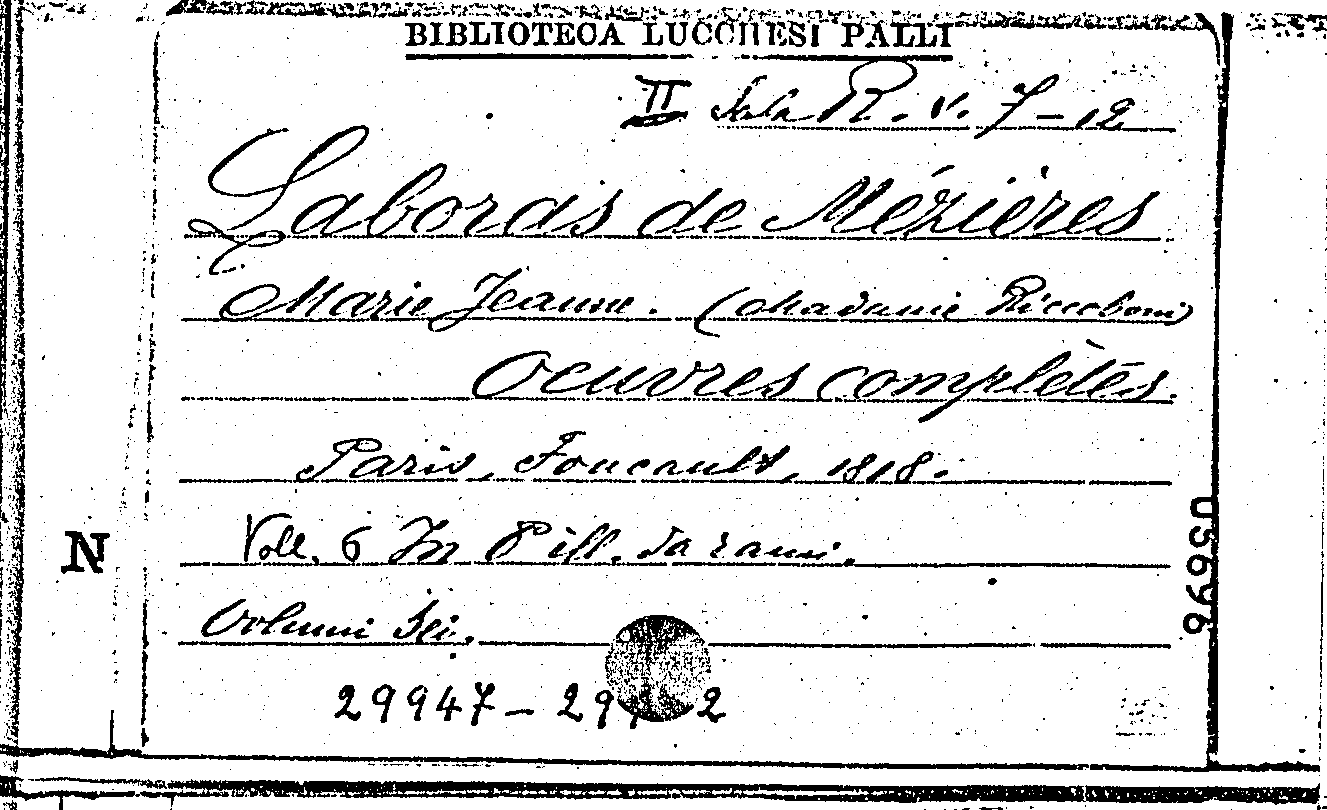 BIBLIOTECA LUCCHESI PALLI
II Sala R. V. 7-12
Laboras de Mézières
Marie Jeanne. (Madame Riccoboni)
Oeuvres complètes.
Paris, Foucault, 1818.
Voll. 6 In 8
Volumi Sei.
29947 - 29 2
N
05696